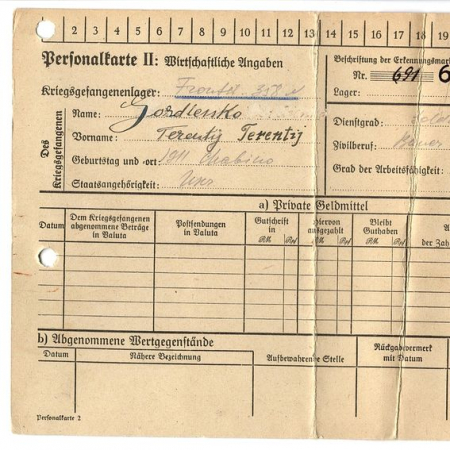 1 2 3 4 5 6 7 8 9 10 11 12 13 14 15 16 17 18 19
Personalkarte II: Wirtschaftliche Angaben
Beschriftung der Erkennungsmar
Nr. 691 6
Kriegsgefangenenlager:
Lager:
Des Kriegsgefangenen
Name: Gordienko
Dienstgrad: Sold
Vorname: Terentij Terentij
Zivilberuf: Bauer
Geburtstag und -ort: 1911
Grad der Arbeitsfähigkeit:
Staatsangehörigkeit: Ukr
a) Private Geldmittel
Datum
Dem Kriegsgefangenen abgenommene Beträge in Valuta
Postsendungen in Valuta
Gutschrift in
RM Rpf
Hiervon ausgezahlt
RM Rpf
Bleibt Guthaben
RM Rpf
A
der Zah
b) Abgenommene Wertgegenstände
Datum
Nähere Bezeichnung
Aufbewahrende Stelle
Rückgabevermerk mit Datum
Personalkarte 2